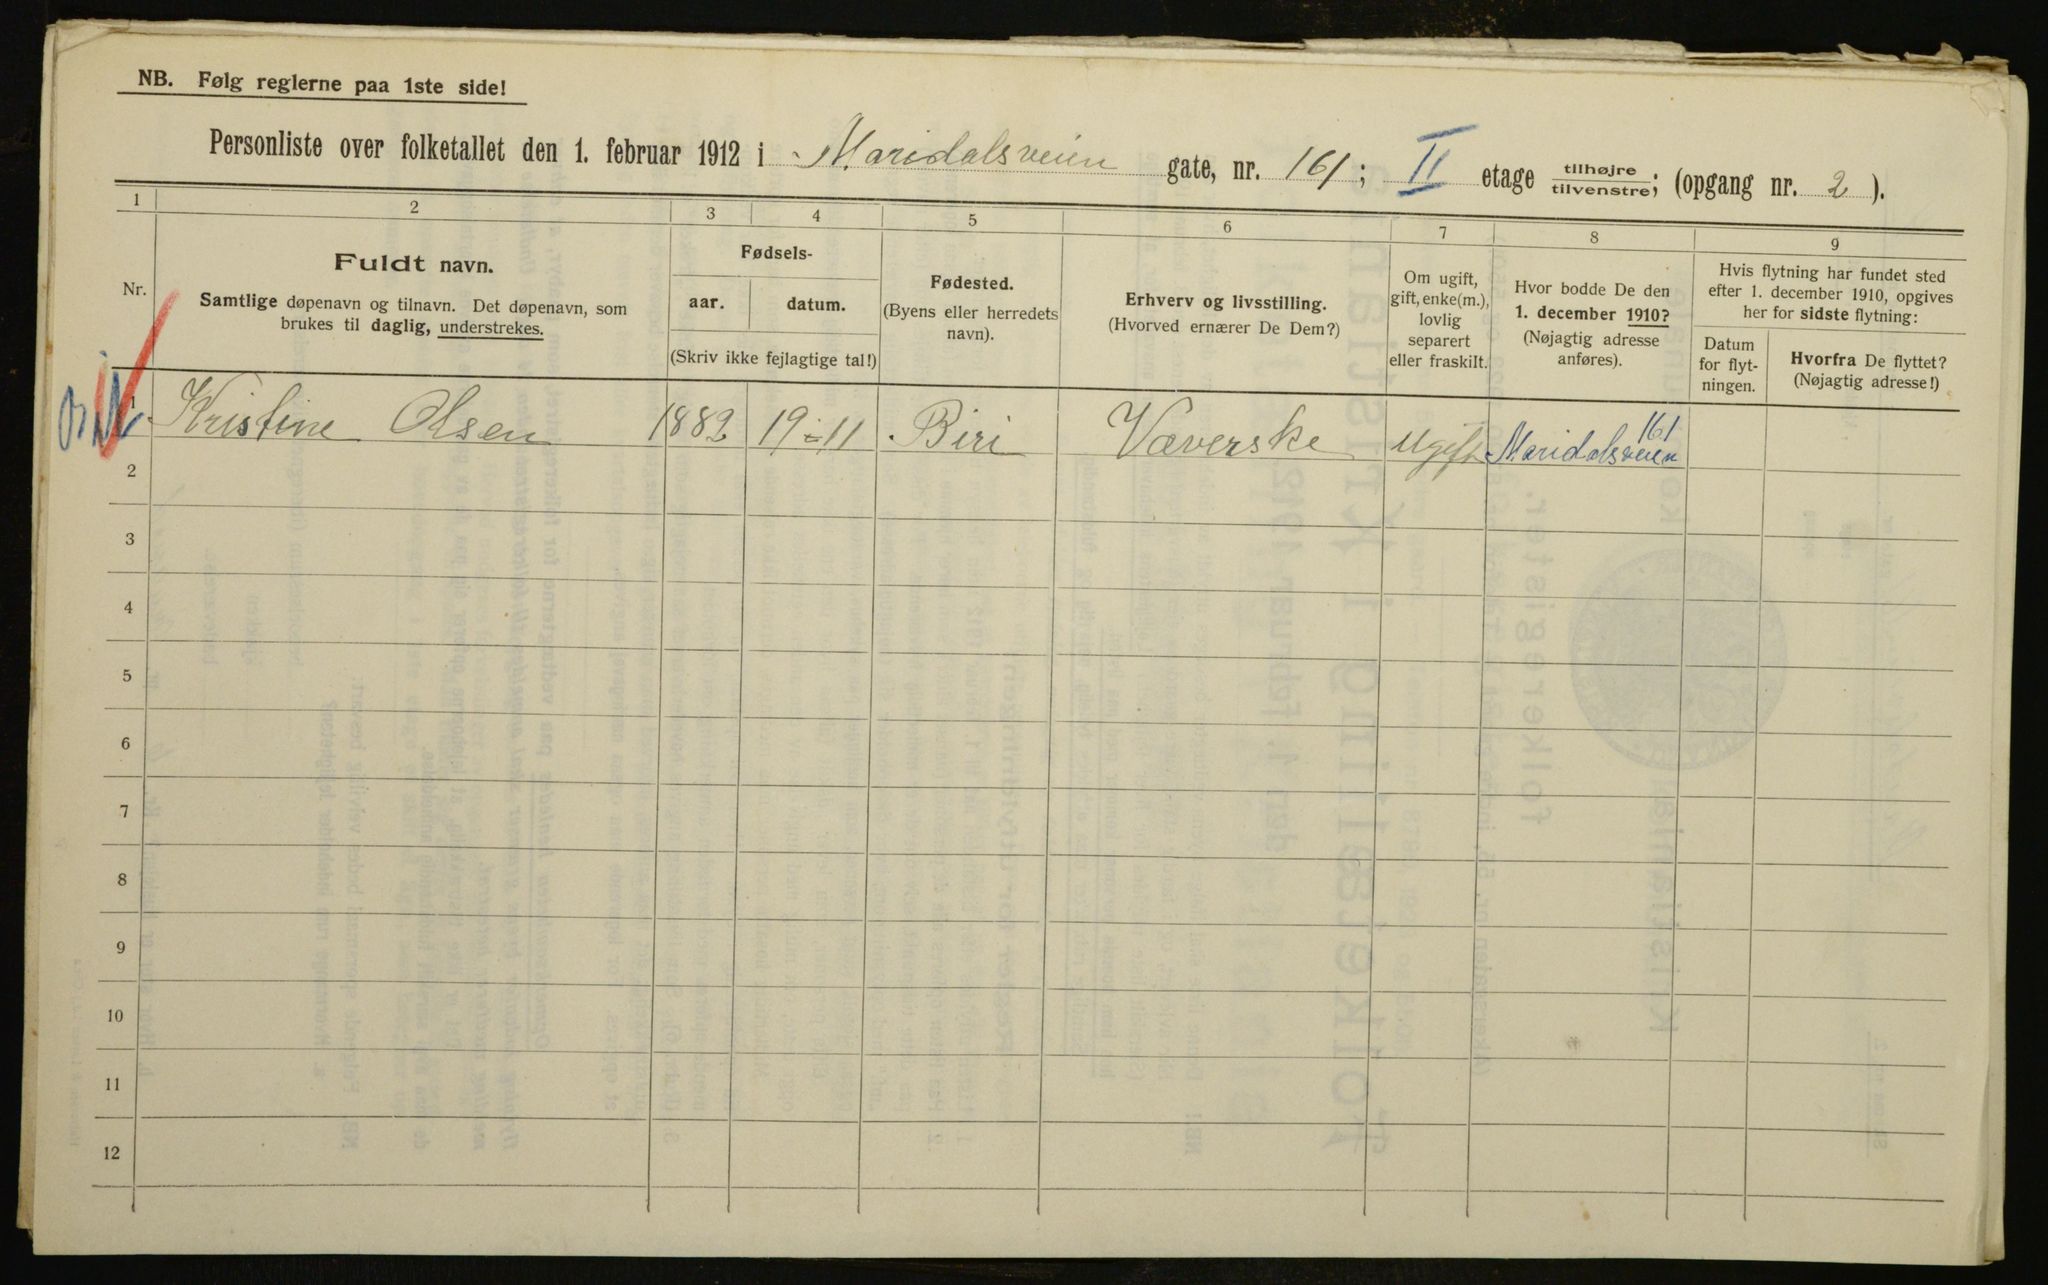 NB. Følg reglerne paa 1ste side!
Personliste over folketallet den 1. februar 1912 i Maridalsveien gate, nr. 161; II etage tilhøjre/tilvenstre; (opgang nr. 2).
1 2 3 4 5 6 7 8 9
Nr.
Fuldt navn.
Samtlige døpenavn og tilnavn. Det døpenavn, som
brukes til daglig, understrekes.
Fødsels-
aar. datum.
(Skriv ikke fejlagtige tal!)
Fødested.
(Byens eller herredets
navn).
Erhverv og livsstilling.
(Hvorved ernærer De Dem?)
Om ugift,
gift, enke(m.),
lovlig
separert
eller fraskilt.
Hvor bodde De den
1. december 1910?
(Nøjagtig adresse
anføres).
Hvis flytning har fundet sted
efter 1. december 1910, opgives
her for sidste flytning:
Datum
for flyt-
ningen.
Hvorfra De flyttet?
(Nøjagtig adresse!)
1 Kristine Olsen 1882 19-11 Biri Væverske Ugift Maridalsveien 161
2
3
4
5
6
7
8
9
10
11
12